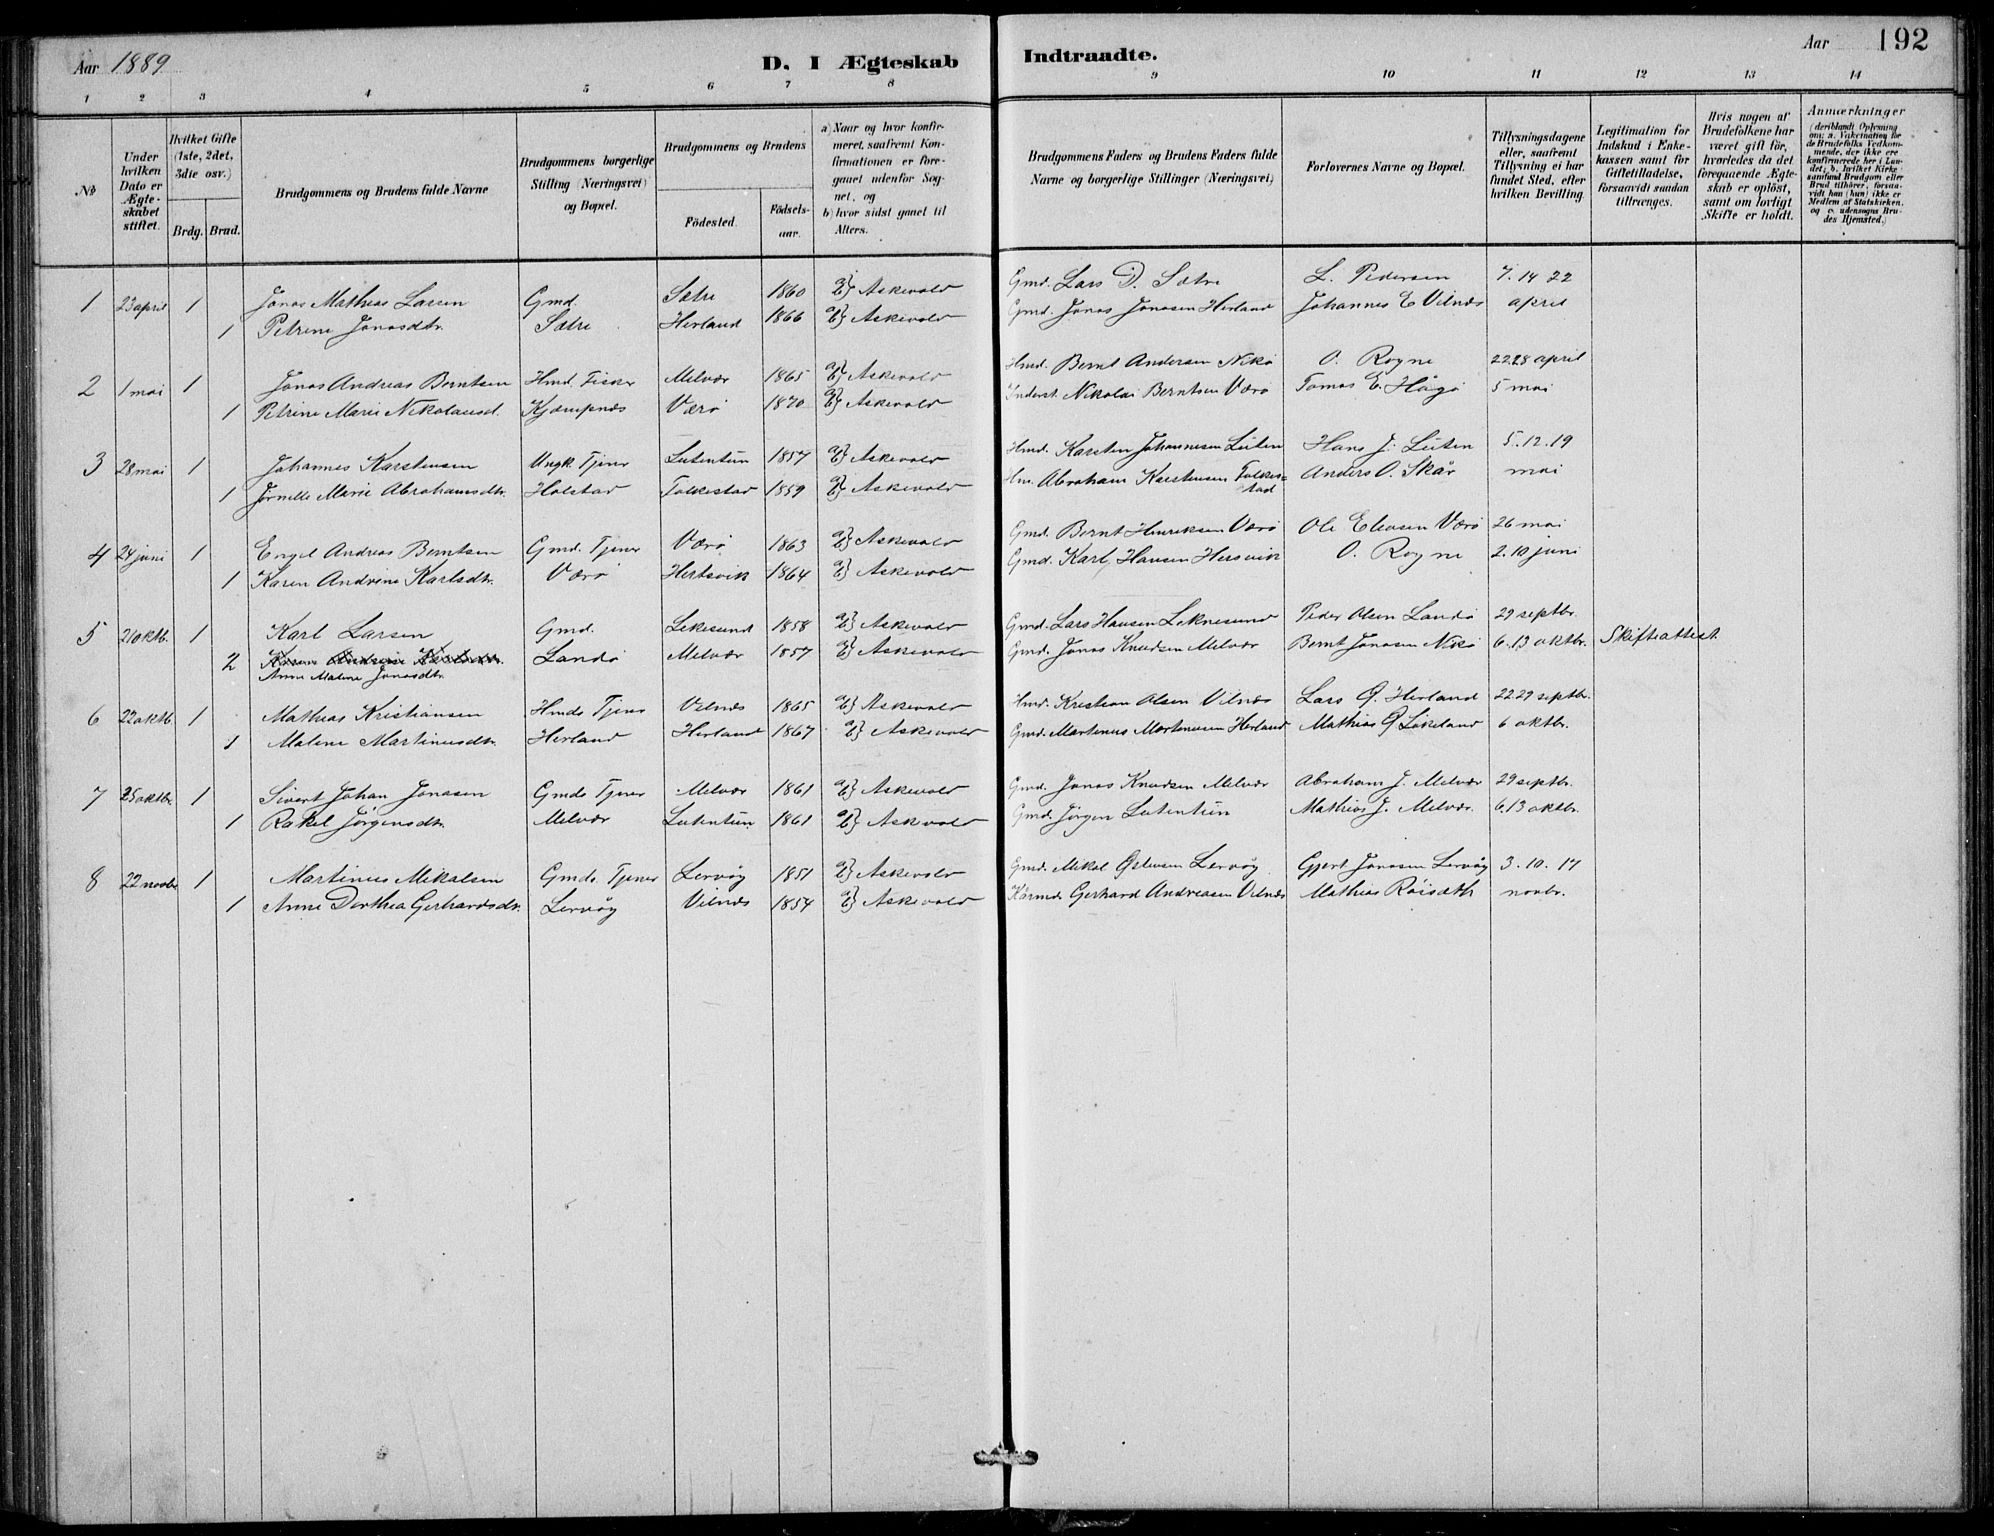 Aar 1889
D. I Ægteskab Indtraadte.
Aar 192
1 2 3 4 5 6 7 8 9 10 11 12 13 14
No
Under hvilken Dato er Ægteskabet stiftet.
Hvilket Gifte (1ste, 2det, 3die osv.)
Brdg. Brud.
Brudgommens og Brudens fulde Navne
Brudgommens borgerlige Stilling (Næringsvei) og Bopæl.
Brudgommens og Brudens
Fødested. Fødselsaar.
a) Naar og hvor konfirmeret, saafremt Konfirmationen er foregaaet udenfor Sognet, og
b) hvor sidst gaaet til Alters.
Brudgommens Faders og Brudens Faders fulde Navne og borgerlige Stillinger (Næringsvei)
Forlovernes Navne og Bopæl.
Tillysningsdagene eller, saafremt Tillysning ei har fundet Sted, efter hvilken Bevilling.
Legitimation for Indskud i Enkekassen samt for Giftetilladelse, forsaavidt saadan tiltrænges.
Hvis nogen af Brudefolkene har været gift før, hvorledes da det foregaaende Ægteskab er opløst, samt om lovligt Skifte er holdt.
Anmærkninger (deriblandt Oplysning om: a. Vakcination for de Brudefolks Vedkommende, der ikke ere konfirmerede her i Landet, b. hvilket Kirkesamfund Brudgom eller Brud tilhører, forsaavidt han (hun) ikke er Medlem af Statskirken, og c. udensogns Brudes Hjemsted.)
1 23 april 1 Jonas Mathias Larsen Gmd. Sætre 1860 a} b} Askevold Gmd. Lars D. Sætre L. Pedersen 7. 14 22
1 Petrine Jonasdtr. Sætre Herland 1866 a} b} Askevold Gmd. Jonas Jonasen Herland Johannes E Vilnæs april
2 1 mai 1 Jonas Andreas Berntsen Hmd. Fisker Melvær 1865 a} b} Askevold Hmd. Bernt Andersen Nikø O. Rogne 22 28 april
1 Petrine Marie Nikolausd. Kjempnæs Værø 1870 a} b} Askevold Inderst. Nikolai Berntsen Værø Tomas E. Hågø 5 mai
3 28 mai 1 Johannes Karstensen Ungk. Tjener Lutentun 1857 a} b} Askevold Hmd. Karsten Johannesen Luten Hans J. Luten 5. 12. 19
1 Jørnelle Marie Abrahamsdtr. Holstad Folkestad 1859 a} b} Askevold Hm. Abraham Karstensen Folkestad Anders O. Skår mai
4 24 juni 1 Engel Andreas Berntsen Gmd. Tjener Værø 1863 a} b} Askevold Gmd. Bernt Henriksen Værø Ole Eliasen Værø 26 mai
1 Karen Andrine Karlsdtr. Værø Hersvik 1864 a} b} Askevold Gmd. Karl Hansen Hersvik O. Rogne 2. 10 juni
5 21 oktb. 1 Karl Larsen Gmd. Leknesund 1858 a} b} Askevold Gmd. Lars Hansen Leknesund Peder Olsen Landø 29 septbr.
2 Karen Andrine Karlsdtr. Landø Melvær 1857 a} b} Askevold Gmd. Jonas Knudsen Melvær Bernt Jonasen Nikø 6. 13 oktbr. Skifteattest
Anne Malene Jonasdtr.
6 22 oktb. 1 Mathias Kristiansen Hmds Tjener Vilnæs 1865 a} b} Askevold Hmd. Kristian Olsen Vilnæs Lars O. Herland 22 29 septbr.
1 Malene Martinusdtr. Herland Herland 1867 a} b} Askevold Gmd. Martinus Mortensen Herland Mathias O Løkeland 6 oktbr.
7 25 oktbr 1 Sivert Johan Jonasen Gmds Tjener Melvær 1861 a} b} Askevold Gmd. Jonas Knudsen Melvær Abraham J. Melvær 29 septbr.
1 Rakel Jørgensdtr. Melvær Lutentun 1861 a} b} Askevold Gmd. Jørgen Lutentun Mathias J. Melvær. 6. 13 oktbr.
8 22 novbr 1 Martinus Mikalsen Gmds. Tjener Lervåg 1851 a} b} Askevold Gmd. Mikal Østensen Lervåg Gjert Jonasen Lervåg 3. 10. 17
1 Anne Dorthea Gerhardsdtr. Lervåg Vilnæs 1854 a} b} Askevold Kårmd. Gerhard Andreasen Vilnæs Mathias Røisæth novbr.